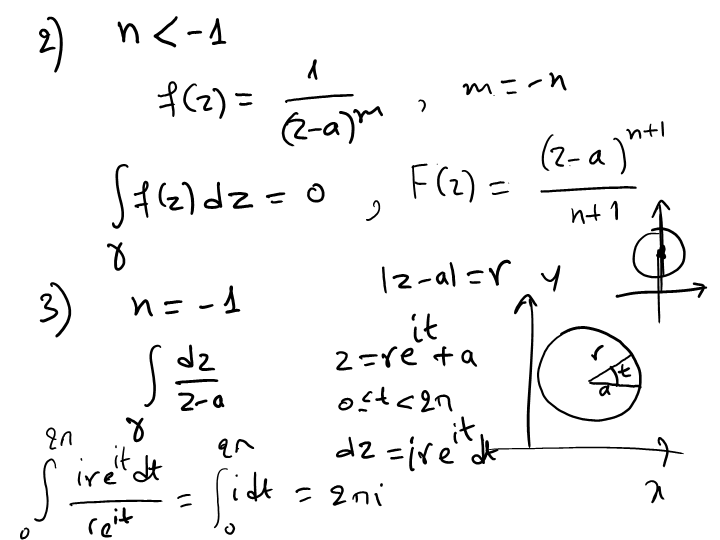 2) n < -1
f(z) = 1/(z-a)^m , m = -n
∫_γ f(z) dz = 0 , F(z) = (z-a)^{n+1}/(n+1)
|z-a| = r
3) n = -1
∫_γ dz/(z-a)
z = re^{it} + a
0 ≤ t < 2π
dz = ire^{it} dt
∫_0^{2π} ire^{it} dt/re^{it} = ∫_0^{2π} i dt = 2πi
y
r
t
a
x